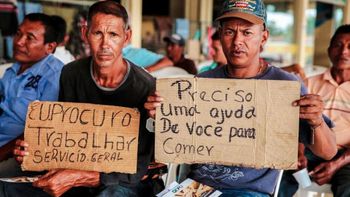 EUPROCURO
TrabaLhar
SERVICIO.GERAL
Preciso
Uma ajuda
De Você para
Comer